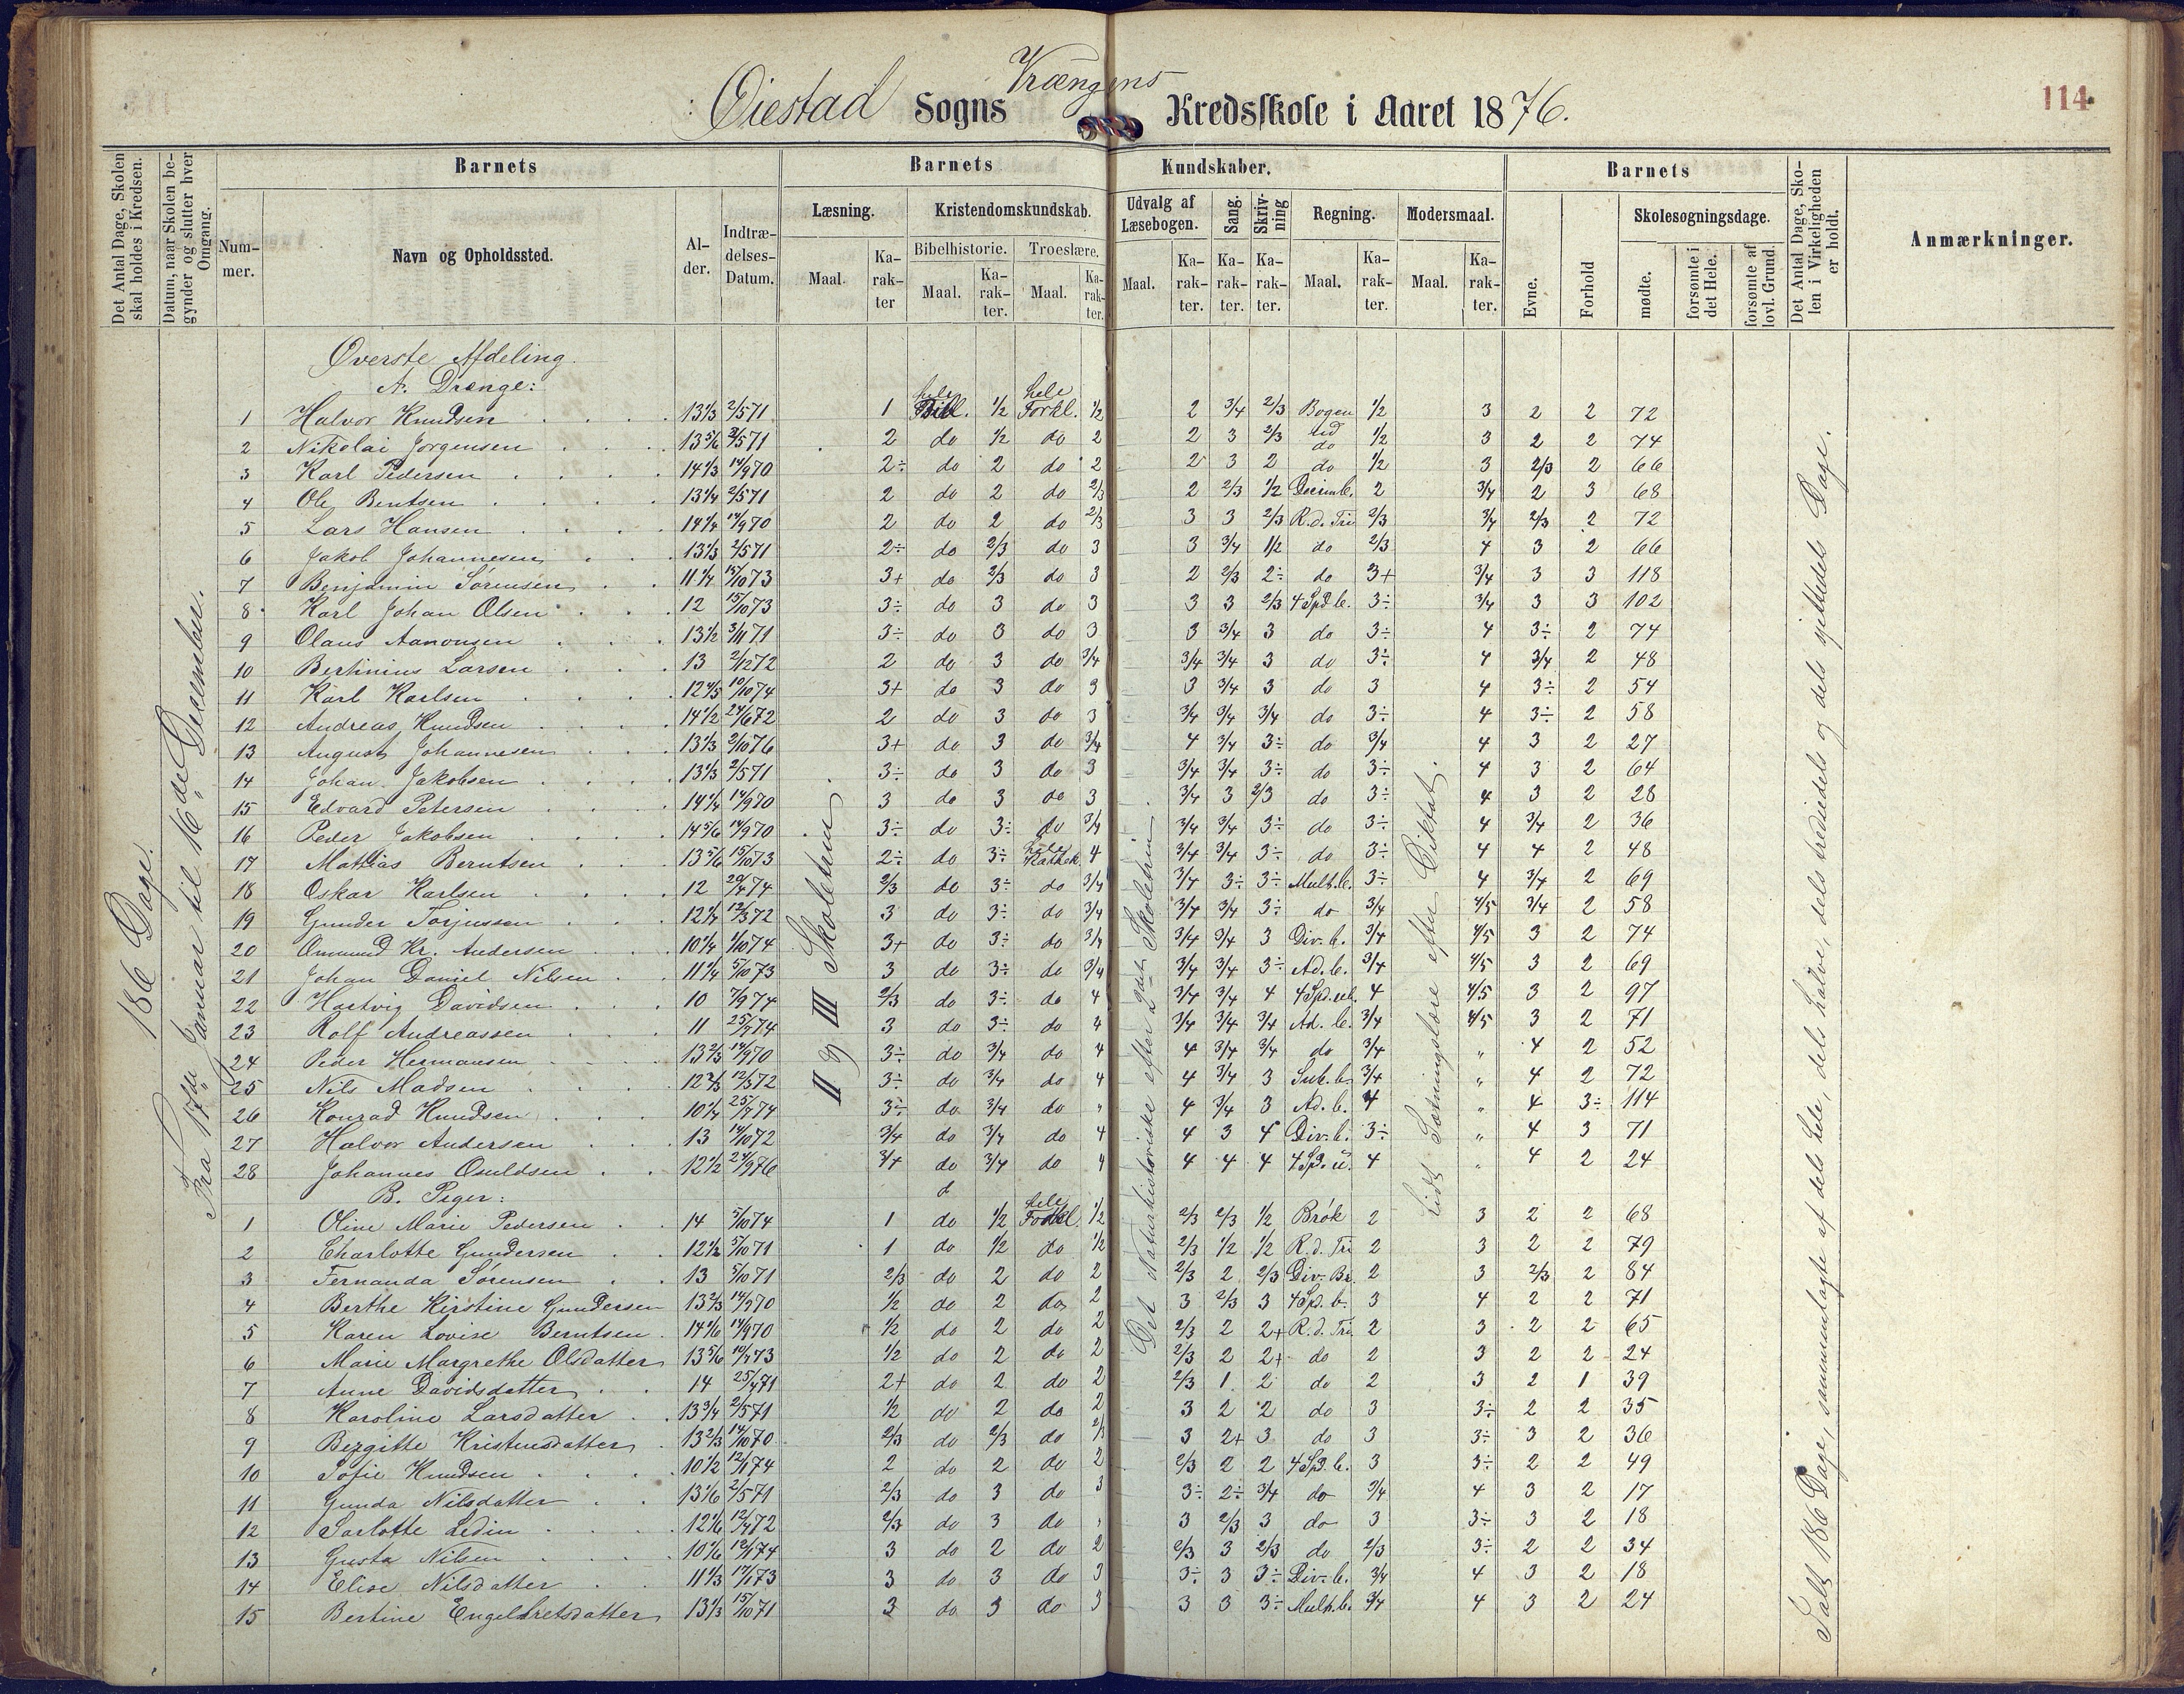 Øiestad Sogns Vrængens Kredsskole i Aaret 1876.
114
Det Antal Dage, Skolen skal holdes i Kredsen.
Datum, naar Skolen begynder og slutter hver Omgang.
Barnets
Nummer.
Navn og Opholdssted.
Alder.
Indtrædelses-Datum.
Barnets Kundskaber.
Læsning.
Maal.
Karakter
Kristendomskundskab.
Bibelhistorie.
Maal.
Karakter.
Troeslære.
Maal.
Karakter.
Udvalg af Læsebogen.
Maal.
Karakter.
Sang.
Karakter.
Skrivning
Karakter.
Regning.
Maal.
Karakter.
Modersmaal.
Maal.
Karakter.
Barnets
Evne.
Forhold
Skolesøgningsdage.
mødte.
forsømte i det Hele.
forsømte af lovl. Grund.
Det Antal Dage, Skolen i Virkeligheden er holdt.
Anmærkninger.
186 Dage.
Fra 17de Januar til 16de December.
II og III Skoletrin
Det Naturhistoriske efter 2det Skoletrin.
Lidt Sætningslære efter Diktat.
Ialt 186 Dage, sammenlagte af dels hele, dels halve, dels trediedels og dels sjettedels Dage.
Øverste Afdeling.
A. Drenge:
1 Halvor Knudsen 13 1/3 2/5 71 1 hele Bibl. 1/2 hele Forkl. 1/2 2 3/4 2/3 Bogen ud 1/2 3 2 2 72
2 Nikolai Jørgensen 13 5/6 2/5 71 2 do 1/2 do 2 2 3 2/3 do 1/2 3 2 2 74
3 Karl Pedersen 14 1/3 14/9 70 2÷ do 2 do 2 2 3 2 do 1/2 3 2/3 2 66
4 Ole Bentsen 13 1/4 2/5 71 2 do 2 do 2/3 2 2/3 1/2 Decimb. 2 3/4 2 3 68
5 Lars Hansen 14 1/4 14/9 70 2 do 2 do 2/3 3 3 2/3 R.d. Tri 2/3 3/4 2/3 2 72
6 Jakob Johannesen 13 1/3 2/5 71 2÷ do 2/3 do 3 3 3/4 1/2 do 2/3 4 3 2 66
7 Benjamin Sørensen 11 1/4 15/10 73 3+ do 2/3 do 3 2 2/3 2÷ do 3+ 3/4 3 3 118
8 Karl Johan Olsen 12 15/10 73 3÷ do 3 do 3 3 3 2/3 4 Spd b. 3÷ 3/4 3 3 102
9 Olaus Aanonsen 13 1/2 3/11 71 3÷ do 3 do 3 3 3/4 3 do 3÷ 4 3÷ 2 74
10 Bertinius Larsen 13 2/12 72 2 do 3 do 3/4 3/4 3/4 3 do 3÷ 4 3/4 2 48
11 Karl Karlsen 12 4/5 10/10 74 3+ do 3 do 3 3 3/4 3 do 3 4 3÷ 2 54
12 Andreas Knudsen 14 1/2 24/6 72 2 do 3 do 3 3/4 3/4 3/4 do 3÷ 4 3÷ 2 58
13 August Johannesen 13 1/3 2/10 76 3+ do 3 do 3/4 4 3/4 3÷ do 3/4 4 3 2 27
14 Johan Jakobsen 13 1/3 2/5 71 3÷ do 3 do 3 3/4 3/4 3÷ do 3÷ 4 3 2 64
15 Edvard Petersen 14 1/4 14/9 70 3 do 3 do 3 3/4 3 2/3 do 3÷ 4 3 2 28
16 Peder Jakobsen 14 5/6 14/9 70 3÷ do 3÷ do 3/4 3/4 3/4 3÷ do 3÷ 4 3/4 2 36
17 Mathias Berntsen 13 5/6 15/10 73 2÷ do 3÷ hele Kathek. 4 3/4 3/4 3÷ do 3÷ 4 4 2 48
18 Oskar Karlsen 12 20/4 74 2/3 do 3÷ do 3/4 3/4 3÷ 3÷ Mult.b. 3÷ 4 3/4 2 69
19 Gunder Torjussen 12 1/4 12/3 72 3 do 3÷ do 3/4 3/4 3/4 3÷ do 3/4 4/5 3/4 2 58
20 Ommund Kr. Andersen 10 1/4 1/10 74 3+ do 3÷ do 3/4 3/4 3/4 3 Div. b. 3/4 4/5 3 2 74
21 Johan Daniel Nilsen 11 1/4 5/10 73 3 do 3÷ do 3/4 3/4 3/4 3÷ Ad. b. 3/4 4/5 3 2 69
22 Hartvig Davidsen 10 7/9 74 2/3 do 3÷ do 4 3/4 3/4 4 4 Spd. ub. 4 4/5 3 2 97
23 Rolf Andreassen 11 25/7 74 3 do 3÷ do 4 3/4 3/4 3/4 Ad. b. 3/4 4/5 3 2 71
24 Peder Hermansen 13 2/3 14/9 70 3÷ do 3/4 do 4 4 3/4 3/4 do 3/4 " 4 2 52
25 Nils Madsen 12 2/3 12/3 72 3÷ do 3/4 do 4 4 3/4 3 Sub. b. 3/4 " 4 2 72
26 Konrad Knudsen 10 1/4 25/7 74 3÷ do 3/4 do " 4 3/4 3 Ad. b. 4 " 4 3÷ 114
27 Halvor Andersen 13 14/10 72 3/4 do 3/4 do 4 4 3 4 Div. b. 3÷ " 4 3 71
28 Johannes Osuldsen 12 1/2 24/9 76 3/4 do 3/4 do 4 4 4 4 4 Sp. u. 4 " 4 2 24
B. Piger:
1 Oline Marie Pedersen 14 5/10 74 1 do 1/2 hele Forkl. 1/2 2/3 2/3 1/2 Brøk 2 3 2 2 68
2 Charlotte Gundersen 12 1/2 5/10 71 1 do 1/2 do 1/2 2/3 1/2 1/2 R.d. Tri 2 3 2 2 79
3 Fernanda Sørensen 13 5/10 71 2/3 do 2 do 2 2/3 2 2/3 Div. Br. 2 3 2/3 2 84
4 Berthe Kirstine Gundersen 13 2/3 14/9 70 1/2 do 2 do 2 3 2/3 3 4 Sp. b. 3 4 2 2 71
5 Karen Lovise Berntsen 14 1/6 14/9 70 1/2 do 2 do 2 2/3 2 2+ R.d. Tri. 2 3 2 2 65
6 Marie Margrethe Olsdatter 13 5/6 10/7 73 1/2 do 2 do 2 2/3 2 2+ do 2 3 2 2 24
7 Anne Davidsdatter 14 25/4 71 2+ do 2 do 2 2/3 1 2 do 2 3 2 1 39
8 Karoline Larsdatter 13 3/4 2/5 71 1/2 do 2 do 2 3 2 2 do 3 3÷ 2 2 35
9 Birgitte Kristensdatter 13 2/3 14/10 70 2/3 do 2/3 do 2/3 3 2+ 3 do 3 3÷ 3 2 36
10 Sofie Knudsen 10 1/2 12/1 74 2 do 2 do 2 2/3 2 2 4 Sp. b. 3 3÷ 2 2 49
11 Gunda Nilsdatter 13 1/6 2/5 71 2/3 do 3 do 3 3÷ 2÷ 3/4 do 3/4 4 3 2 17
12 Sarlotte Ledin 12 1/6 12/4 72 2/3 do 3 do 3 2/3 3 do 3 3÷ 3 2 18
13 Gusta Nilsen 10 1/6 12/1 74 3 do 2 do 2 2/3 3 2/3 do 2/3 3÷ 2 2 34
14 Elise Nilsdatter 11 1/3 17/1 73 3 do 3 do 3 3÷ 3 3÷ Div. b. 3/4 4 3 2 18
15 Bertine Engelbretsdatter 13 1/3 15/10 71 3 do 3 do 3 3 3 3÷ Mult. b. 3/4 4 3 2 24